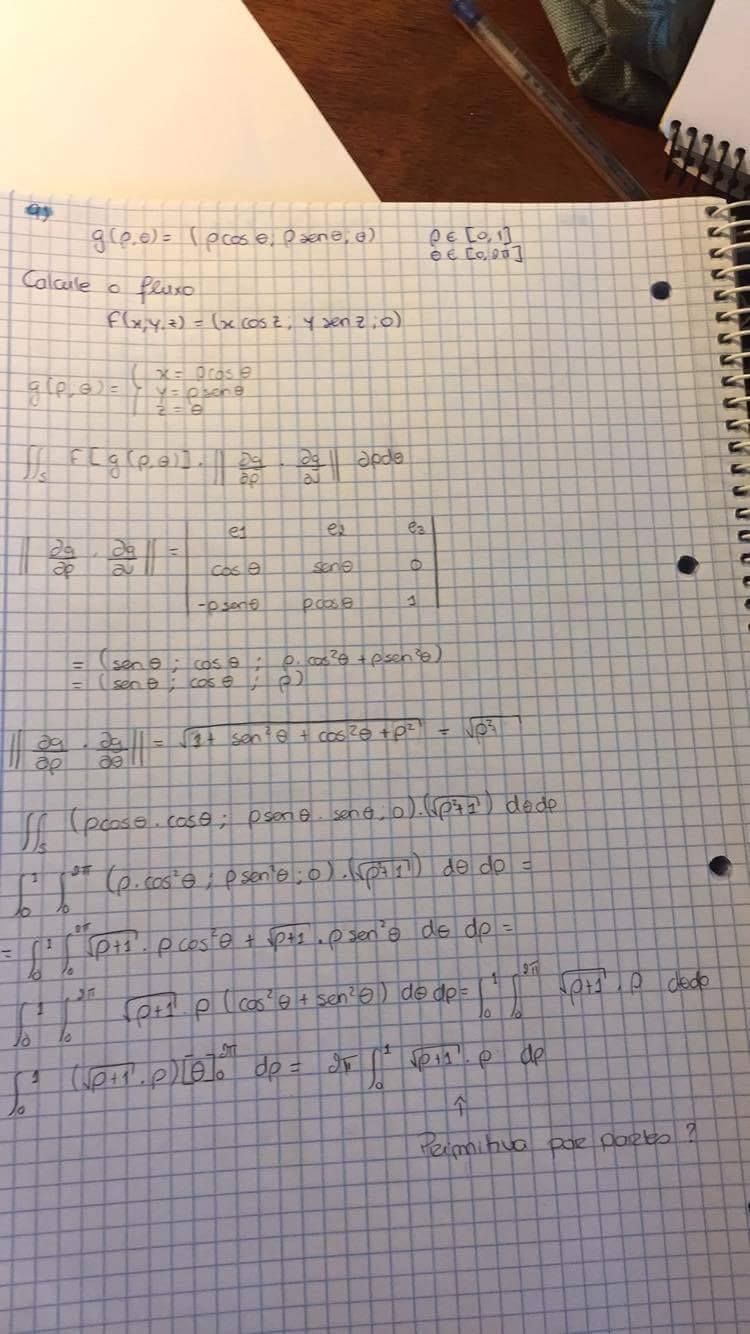 g(ρ,θ) = (ρcosθ, ρsenθ, θ)   ρ ∈ [0,1]
θ ∈ [0,2π]
Calcule o fluxo
F(x,y,z) = (x cosz ; y senz ; 0)
g(ρ,θ) = { x = ρcosθ
y = ρsenθ
z = θ
∬s F[g(ρ,θ)] . || ∂g/∂ρ . ∂g/∂v || ∂ρdθ
|| ∂g/∂ρ . ∂g/∂v || = | e1 e2 e3
cosθ senθ 0
-ρsenθ ρcosθ 1 |
= (senθ ; cosθ ; ρ.cos²θ + ρsen²θ)
= (senθ ; cosθ ; ρ)
|| ∂g/∂ρ . ∂g/∂θ || = √(1 + sen²θ + cos²θ + ρ²) = √ρ²
∬s (ρcosθ.cosθ ; ρsenθ.senθ ; 0).(√ρ²+1) dθdρ
∫₀¹ ∫₀²π (ρ.cos²θ ; ρsen²θ ; 0).(√ρ²+1) dθ dρ =
= ∫₀¹ ∫₀²π √ρ+1 . ρcos²θ + √ρ+1 . ρsen²θ dθ dρ =
∫₀¹ ∫₀²π √ρ+1 . ρ (cos²θ + sen²θ) dθdρ = ∫₀¹ ∫₀²π √ρ+1 . ρ dθdρ
∫₀¹ (√ρ+1 . ρ)[θ]₀²π dρ = 2π ∫₀¹ √ρ+1 . ρ dρ
↑
Primitiva por partes ?